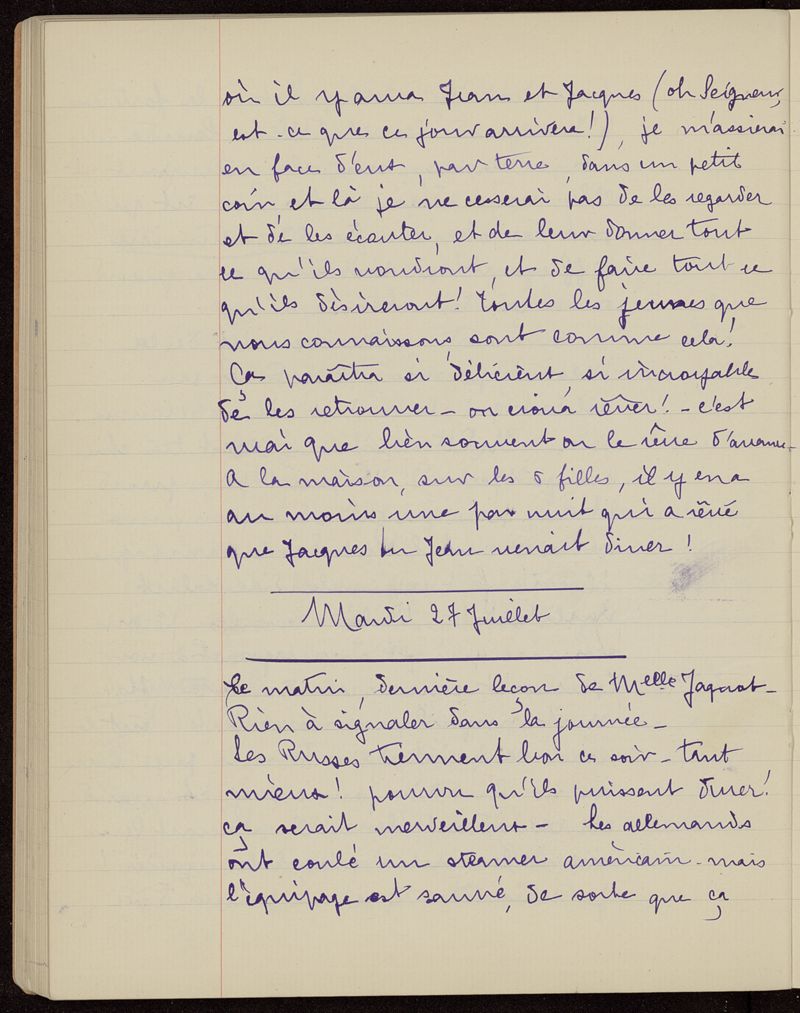 où il y aura Jean et Jacques (oh Seigneur,
est-ce que ce jour arrivera!), je m'assierai
en face d'eux, par terre, dans un petit
coin et là je ne cesserai pas de les regarder
et de les écouter, et de leur donner tout
ce qu'ils voudront, et de faire tout ce
qu'ils désireront! toutes les jeunes que
nous connaissons sont comme cela!
Ça paraîtra si délicient, si incroyable
de les retrouver - on croira rêver! - c'est
vrai que bien souvent on le rêve d'avance -
A la maison, sur les 5 filles, il y en a
au moins une par nuit qui a rêvé
que Jacques ou Jean venait diner!
Mardi 27 Juillet
Ce matin, dernière leçon de Melle Jaquot -
Rien à signaler dans la journée -
Les Russes tiennent bon ce soir - tant
mieux! pourvu qu'ils puissent durer!
ça serait merveilleux - Les allemands
ont coulé un steamer américain - mais
l'équipage est sauvé, de sorte que ça